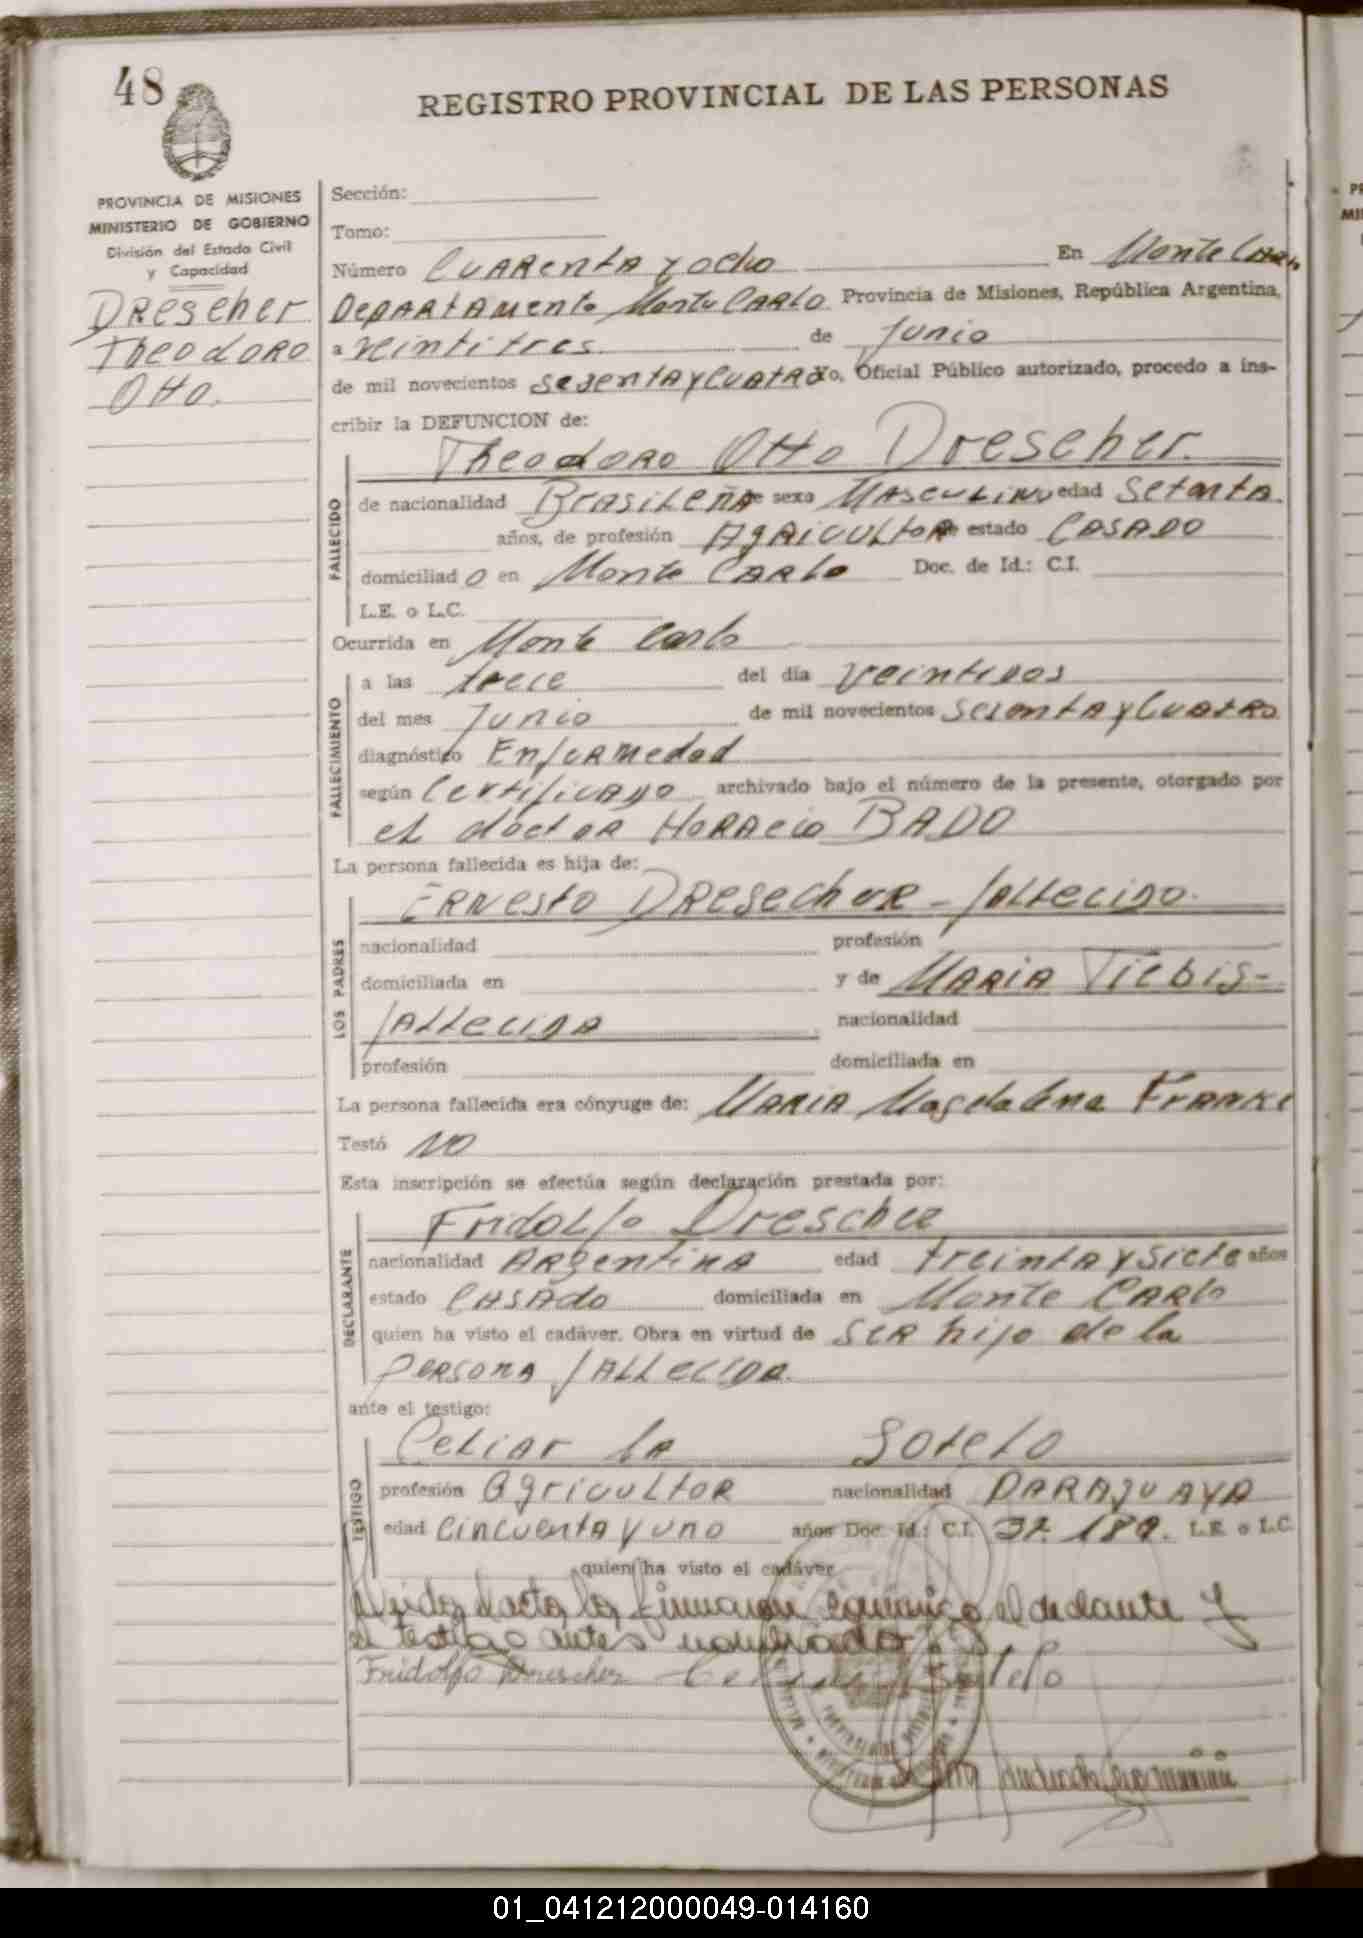 48
REGISTRO PROVINCIAL DE LAS PERSONAS
PROVINCIA DE MISIONES
MINISTERIO DE GOBIERNO
División del Estado Civil
y Capacidad
Drescher
Theodoro
Otto.
Sección:
Tomo:
Número Cuarenta y ocho En Monte Carlo
Departamento Monte Carlo Provincia de Misiones, República Argentina,
a veintitres de Junio
de mil novecientos sesenta y cuatro yo, Oficial Público autorizado, procedo a ins-
cribir la DEFUNCION de:
Theodoro Otto Drescher.
FALLECIDO
de nacionalidad Brasileña de sexo Masculino edad Setenta
años, de profesión Agricultor de estado Casado
domiciliado en Monte Carlo Doc. de Id.: C.I.
L.E. o L.C.
Ocurrida en Monte Carlo
FALLECIMIENTO
a las trece del día veintidos
del mes Junio de mil novecientos sesenta y cuatro
diagnóstico Enfermedad
según Certificado archivado bajo el número de la presente, otorgado por
el doctor Horacio BADO
La persona fallecida es hija de:
LOS PADRES
Ernesto Dresecher - fallecido.
nacionalidad profesión
domiciliada en y de Maria Tiebis-
fallecida nacionalidad
profesión domiciliada en
La persona fallecida era cónyuge de: Maria Magdalena Franke
Testó No
Esta inscripción se efectúa según declaración prestada por:
DECLARANTE
Fridolfo Drescher
nacionalidad Argentina edad treinta y siete años
estado Casado domiciliada en Monte Carlo
quien ha visto el cadáver. Obra en virtud de ser hijo de la
persona fallecida.
ante el testigo:
TESTIGO
Sotelo
profesión Agricultor nacionalidad Paraguaya
edad cincuenta y uno años Doc. Id.: C.I. 37.189. L.E. o L.C.
quien ha visto el cadáver
Leida el acta la firmaron conmigo el declarante y
el testigo antes nombrado
Fridolfo Drescher Sotelo
01_041212000049-014160